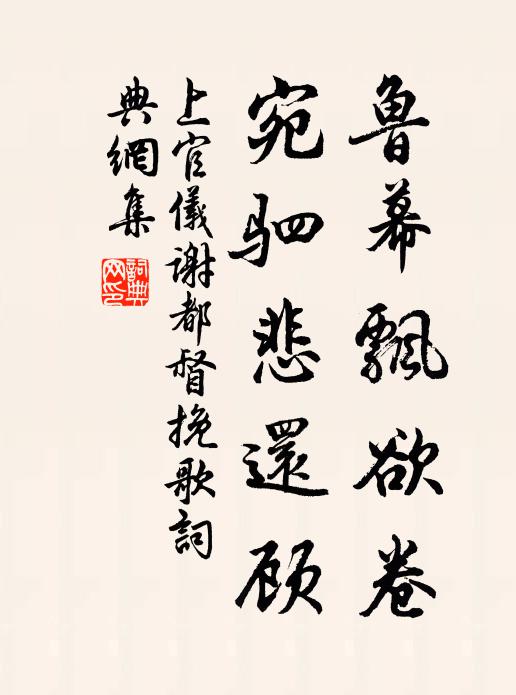 魯幕飄欲卷
宛驷悲還顾
上官儀謝都督挽歌詞
典網集
詞典
网印